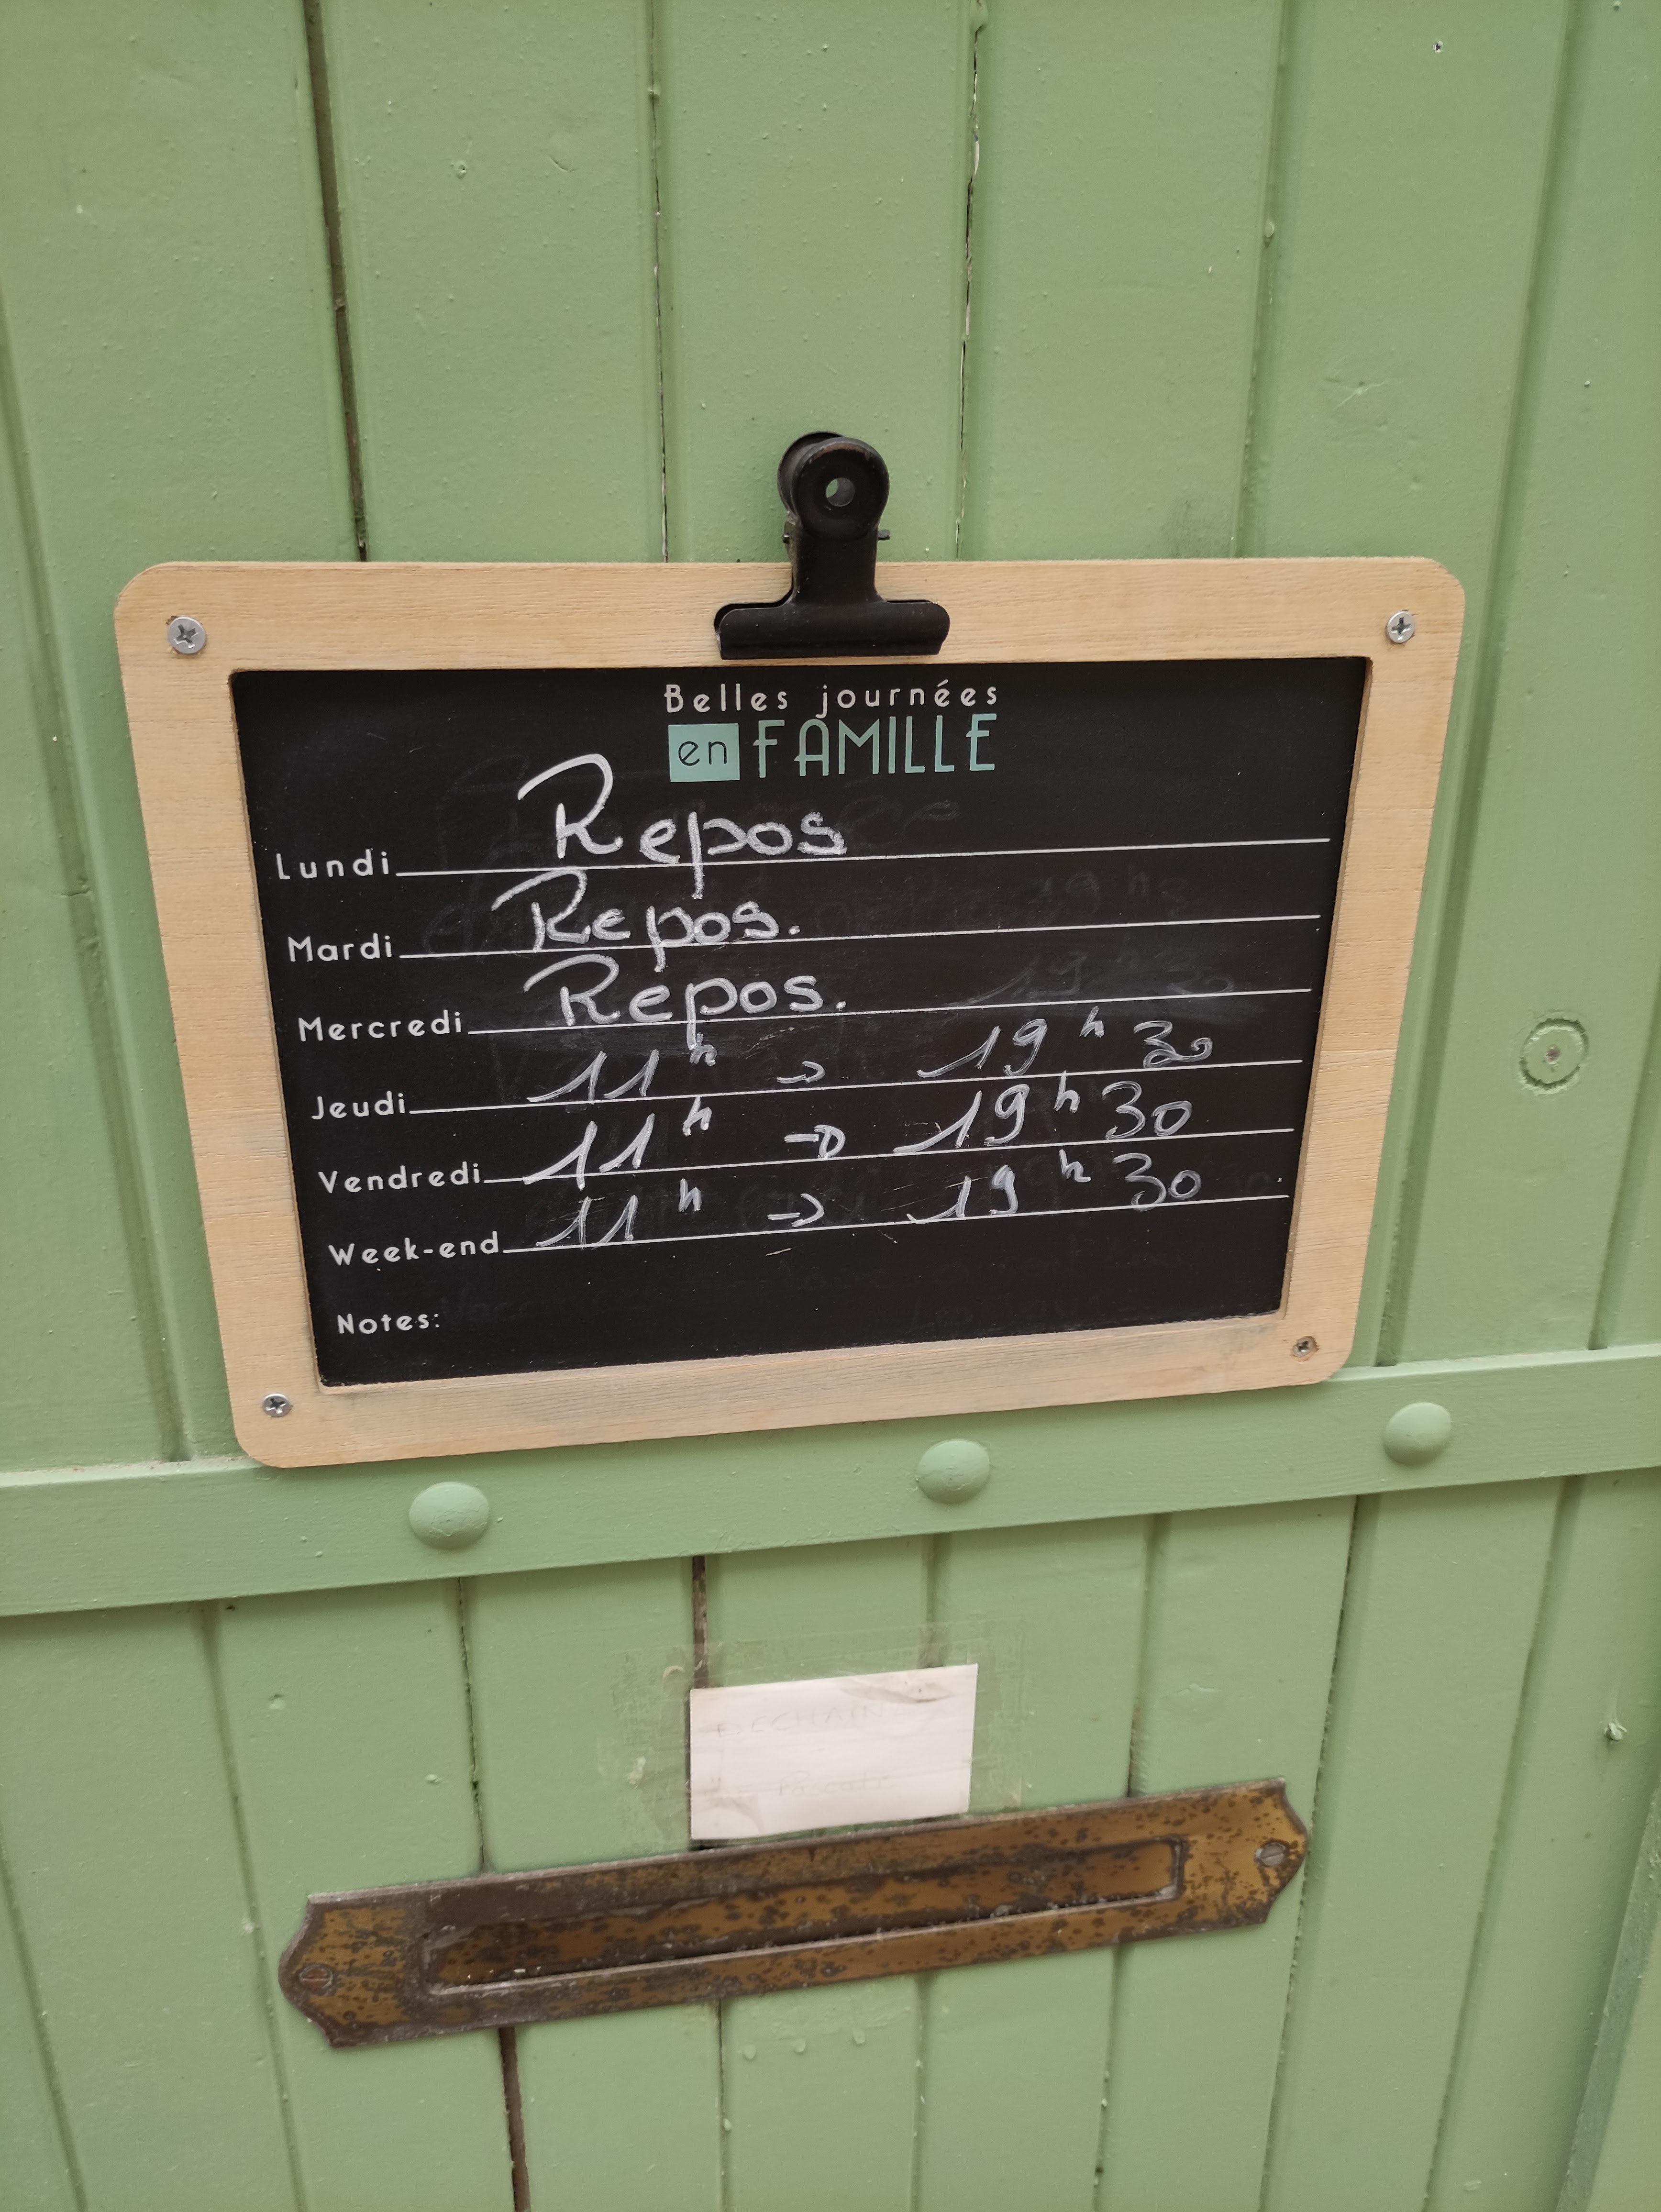 Belles journées
en FAMILLE
Lundi Repos
Mardi Repos.
Mercredi Repos.
Jeudi 11h → 19h30
Vendredi 11h → 19h30
Week-end 11h → 19h30
Notes: